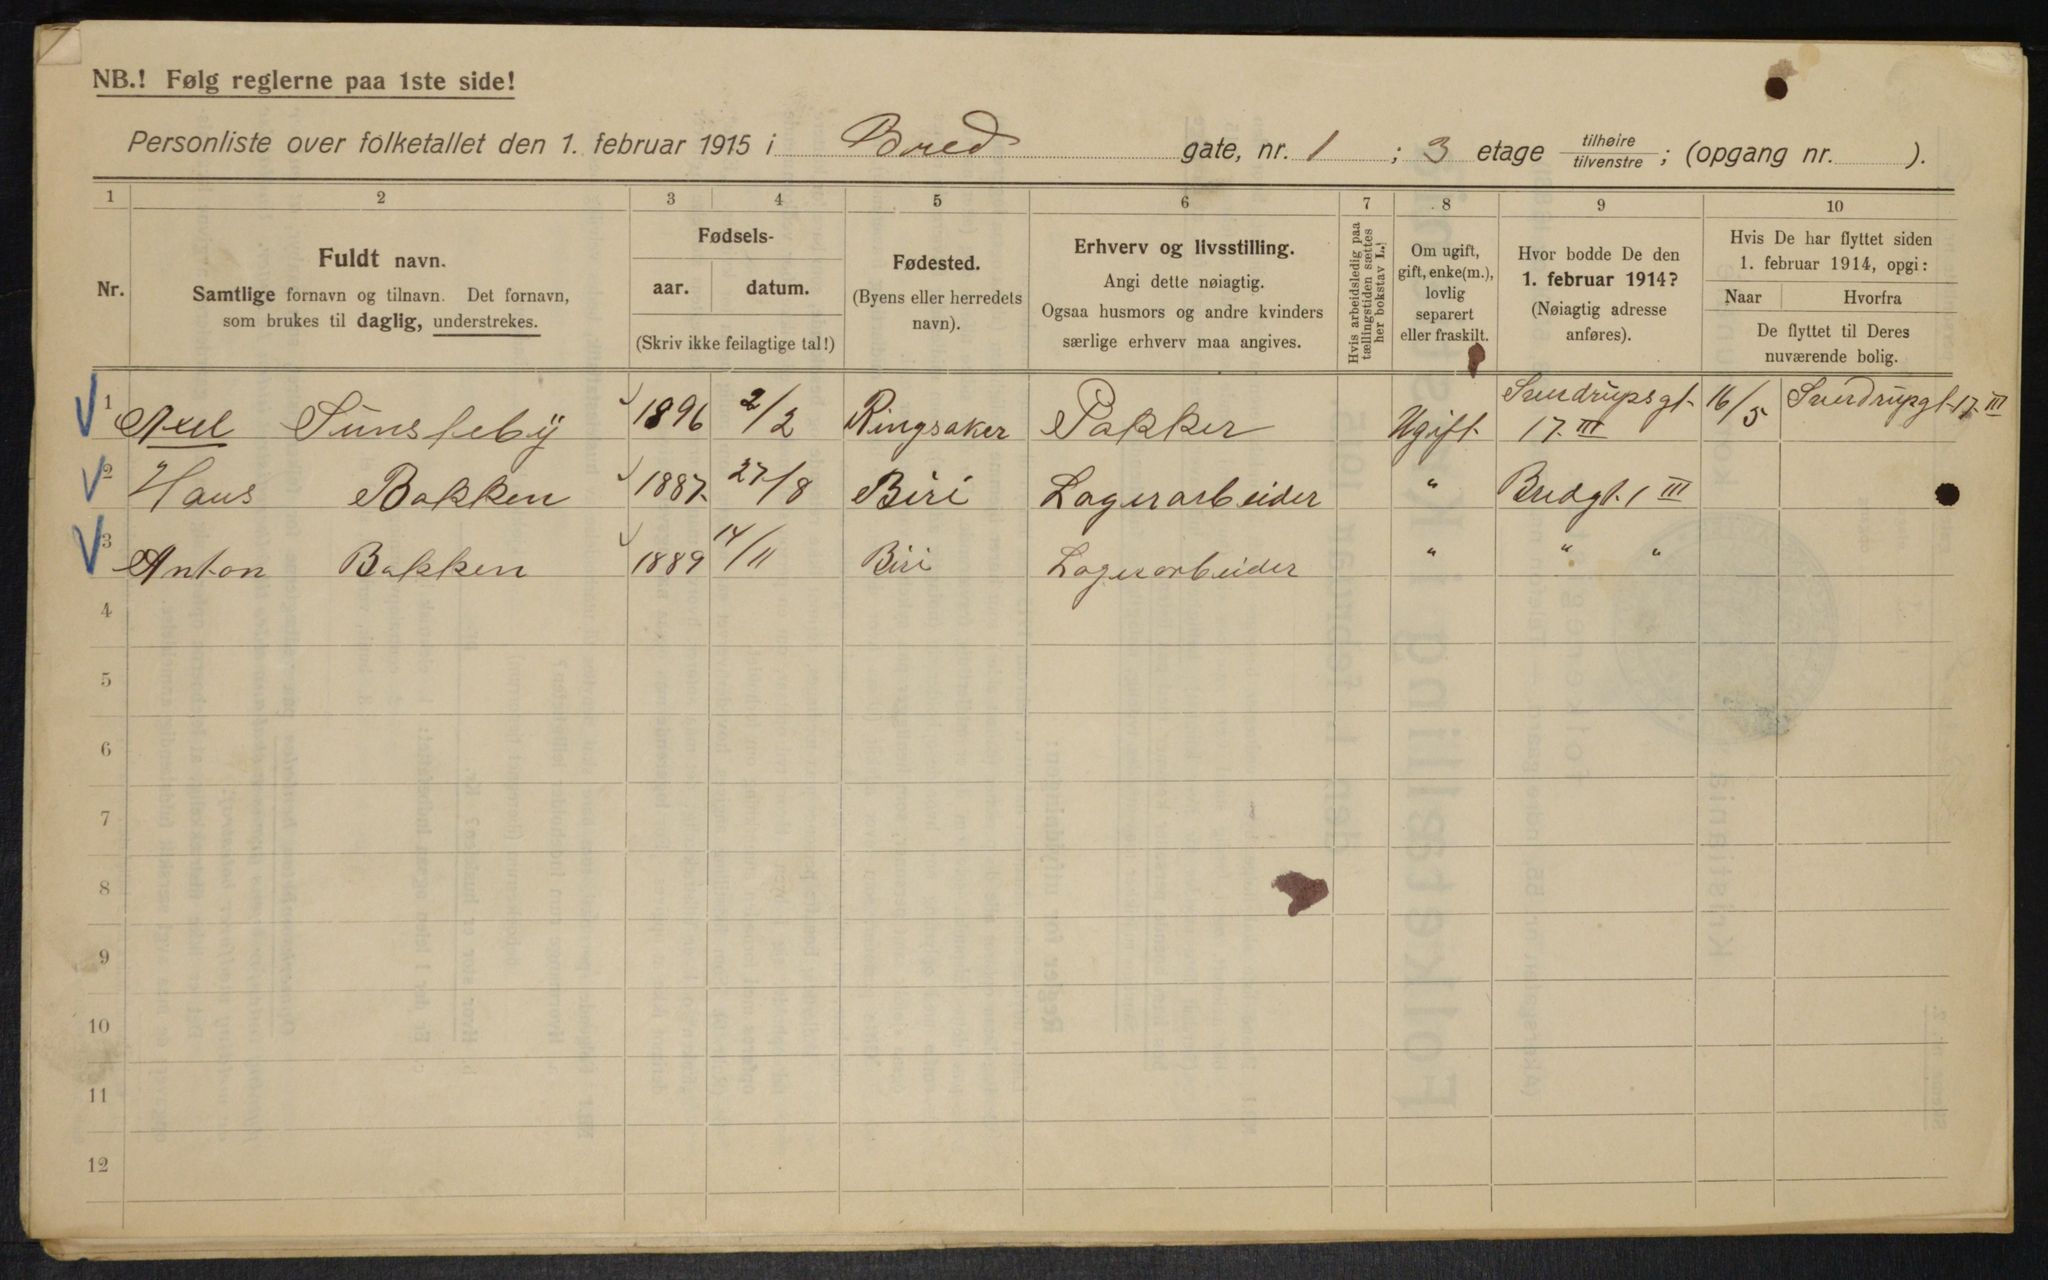 NB.! Følg reglerne paa 1ste side!
Personliste over folketallet den 1. februar 1915 i Bred gate, nr. 1 ; 3 etage tilhøire tilvenstre ; (opgang nr. ).
1 2 3 4 5 6 7 8 9 10
Nr.
Fuldt navn.
Samtlige fornavn og tilnavn. Det fornavn,
som brukes til daglig, understrekes.
Fødsels-
aar. datum.
(Skriv ikke feilagtige tal!)
Fødested.
(Byens eller herredets
navn).
Erhverv og livsstilling.
Angi dette nøiagtig.
Ogsaa husmors og andre kvinders
særlige erhverv maa angives.
Hvis arbeidsledig paa
tællingstiden sættes
her bokstav L.!
Om ugift,
gift, enke(m.),
lovlig
separert
eller fraskilt.
Hvor bodde De den
1. februar 1914?
(Nøiagtig adresse
anføres).
Hvis De har flyttet siden
1. februar 1914, opgi:
Naar Hvorfra
De flyttet til Deres
nuværende bolig.
1 Axel 1896 2/2 Ringsaker Pakker Ugift Sverdrupsgt. 17 III 16/5 Sverdrupgt. 17 III
2 Hans Bakken 1887. 27/8 Biri Lagerarbeider " Bredgt. 1 III
3 Anton Bakken 1889 14/11 Biri Lagerarbeider " " "
4
5
6
7
8
9
10
11
12